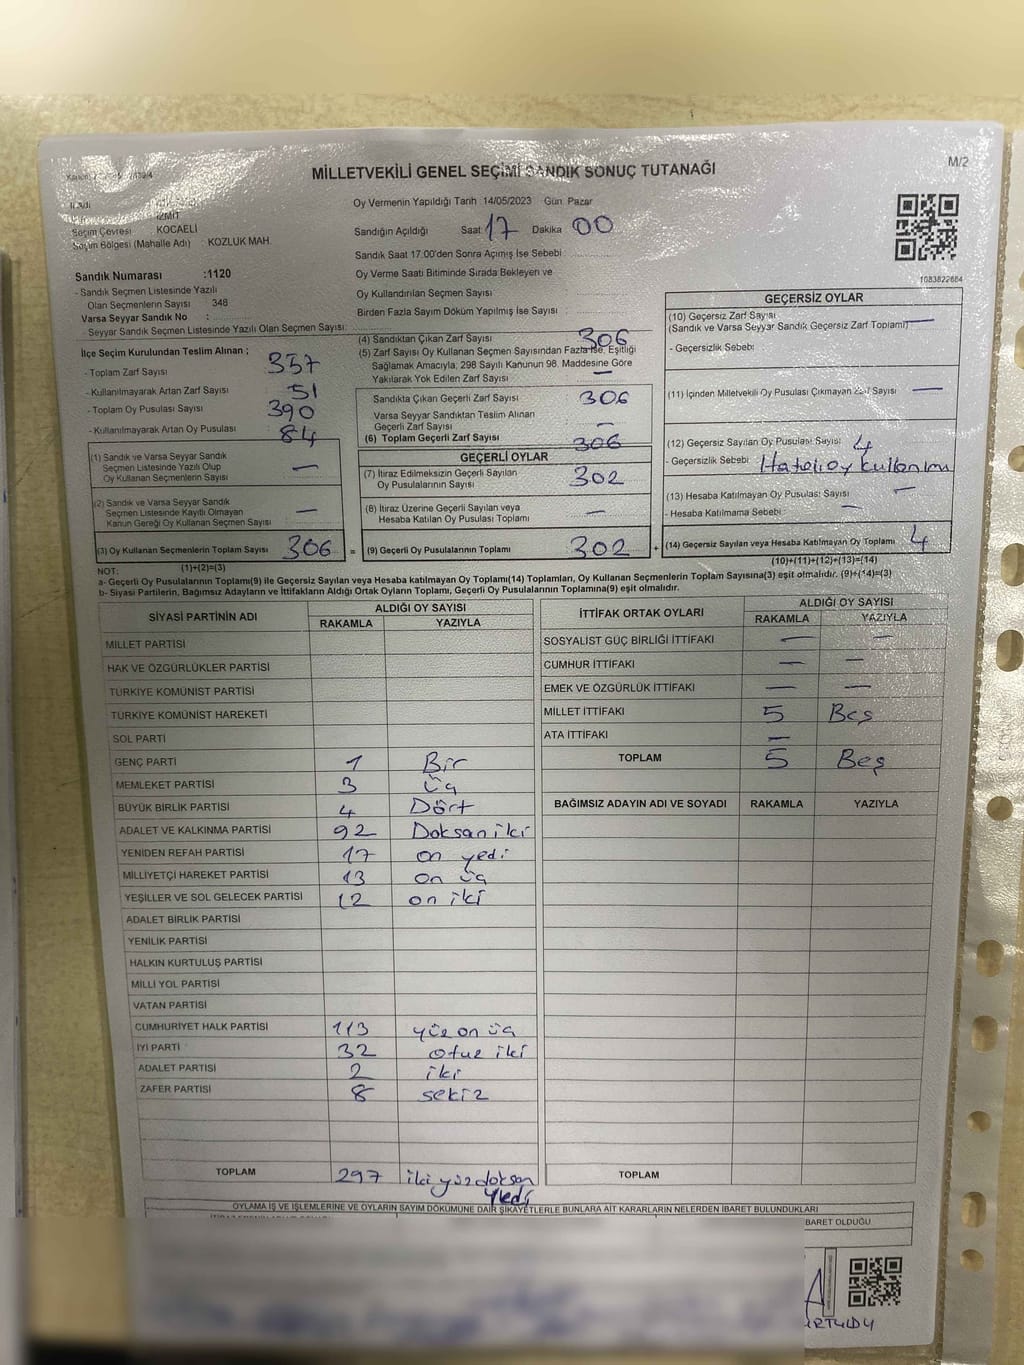 M/2
MİLLETVEKİLİ GENEL SEÇİMİ SANDIK SONUÇ TUTANAĞI
Oy Vermenin Yapıldığı Tarih 14/05/2023 Gün Pazar
İZMİT
Seçim Çevresi KOCAELİ
Seçim Bölgesi (Mahalle Adı) : KOZLUK MAH.
Sandığın Açıldığı Saat 17 Dakika 00
Sandık Saat 17.00'den Sonra Açımış İse Sebebi
Sandık Numarası :1120
- Sandık Seçmen Listesinde Yazılı
Olan Seçmenlerin Sayısı 348
Varsa Seyyar Sandık No :
- Seyyar Sandık Seçmen Listesinde Yazılı Olan Seçmen Sayısı:
Oy Verme Saati Bitiminde Sırada Bekleyen ve
Oy Kullandırılan Seçmen Sayısı
Birden Fazla Sayım Döküm Yapılmış İse Sayısı :
1083822664
İlçe Seçim Kurulundan Teslim Alınan ;
- Toplam Zarf Sayısı 357
- Kullanılmayarak Artan Zarf Sayısı 51
- Toplam Oy Pusulası Sayısı 390
- Kullanılmayarak Artan Oy Pusulası 84
(1) Sandık ve Varsa Seyyar Sandık
Seçmen Listesinde Yazılı Olup
Oy Kullanan Seçmenlerin Sayısı —
(2) Sandık ve Varsa Seyyar Sandık
Seçmen Listesinde Kayıtlı Olmayan
Kanun Gereği Oy Kullanan Seçmen Sayısı —
(3) Oy Kullanan Seçmenlerin Toplam Sayısı 306
(1)+(2)=(3)
(4) Sandıktan Çıkan Zarf Sayısı 306
(5) Zarf Sayısı Oy Kullanan Seçmen Sayısından Fazla ise, Eşitliği
Sağlamak Amacıyla; 298 Sayılı Kanunun 98. Maddesine Göre
Yakılarak Yok Edilen Zarf Sayısı —
Sandıkta Çıkan Geçerli Zarf Sayısı 306
Varsa Seyyar Sandıktan Teslim Alınan
Geçerli Zarf Sayısı —
(6) Toplam Geçerli Zarf Sayısı 306
GEÇERLİ OYLAR
(7) İtiraz Edilmeksizin Geçerli Sayılan
Oy Pusulalarının Sayısı 302
(8) İtiraz Üzerine Geçerli Sayılan veya
Hesaba Katılan Oy Pusulası Toplamı —
= (9) Geçerli Oy Pusulalarının Toplamı 302 +
GEÇERSİZ OYLAR
(10) Geçersiz Zarf Sayısı
(Sandık ve Varsa Seyyar Sandık Geçersiz Zarf Toplamı) —
- Geçersizlik Sebebi
(11) İçinden Milletvekili Oy Pusulası Çıkmayan Zarf Sayısı —
(12) Geçersiz Sayılan Oy Pusulası Sayısı 4
- Geçersizlik Sebebi Hatalı oy kullanımı
(13) Hesaba Katılmayan Oy Pusulası Sayısı —
- Hesaba Katılmama Sebebi —
(14) Geçersiz Sayılan veya Hesaba Katılmayan Oy Toplamı 4
(10)+(11)+(12)+(13)=(14)
NOT:
a- Geçerli Oy Pusulalarının Toplamı(9) ile Geçersiz Sayılan veya Hesaba katılmayan Oy Toplamı(14) Toplamları, Oy Kullanan Seçmenlerin Toplam Sayısına(3) eşit olmalıdır. (9)+(14)=(3)
b- Siyasi Partilerin, Bağımsız Adayların ve İttifakların Aldığı Ortak Oyların Toplamı, Geçerli Oy Pusulalarının Toplamına(9) eşit olmalıdır.
SİYASİ PARTİNİN ADI ALDIĞI OY SAYISI
RAKAMLA YAZIYLA
MİLLET PARTİSİ
HAK VE ÖZGÜRLÜKLER PARTİSİ
TÜRKİYE KOMÜNİST PARTİSİ
TÜRKİYE KOMÜNİST HAREKETİ
SOL PARTİ
GENÇ PARTİ 1 Bir
MEMLEKET PARTİSİ 3 üç
BÜYÜK BİRLİK PARTİSİ 4 Dört
ADALET VE KALKINMA PARTİSİ 92 Doksan iki
YENİDEN REFAH PARTİSİ 17 on yedi
MİLLİYETÇİ HAREKET PARTİSİ 13 on üç
YEŞİLLER VE SOL GELECEK PARTİSİ 12 on iki
ADALET BİRLİK PARTİSİ
YENİLİK PARTİSİ
HALKIN KURTULUŞ PARTİSİ
MİLLİ YOL PARTİSİ
VATAN PARTİSİ
CUMHURİYET HALK PARTİSİ 113 yüz on üç
İYİ PARTİ 32 otuz iki
ADALET PARTİSİ 2 iki
ZAFER PARTİSİ 8 sekiz
TOPLAM 297 iki yüz doksan
yedi
İTTİFAK ORTAK OYLARI ALDIĞI OY SAYISI
RAKAMLA YAZIYLA
SOSYALİST GÜÇ BİRLİĞİ İTTİFAKI — —
CUMHUR İTTİFAKI — —
EMEK VE ÖZGÜRLÜK İTTİFAKI — —
MİLLET İTTİFAKI 5 Beş
ATA İTTİFAKI —
TOPLAM 5 Beş
BAĞIMSIZ ADAYIN ADI VE SOYADI RAKAMLA YAZIYLA
TOPLAM
OYLAMA İŞ VE İŞLEMLERİNE VE OYLARIN SAYIM DÖKÜMÜNE DAİR ŞİKAYETLERLE BUNLARA AİT KARARLARIN NELERDEN İBARET BULUNDUKLARI
BARET OLDUĞU